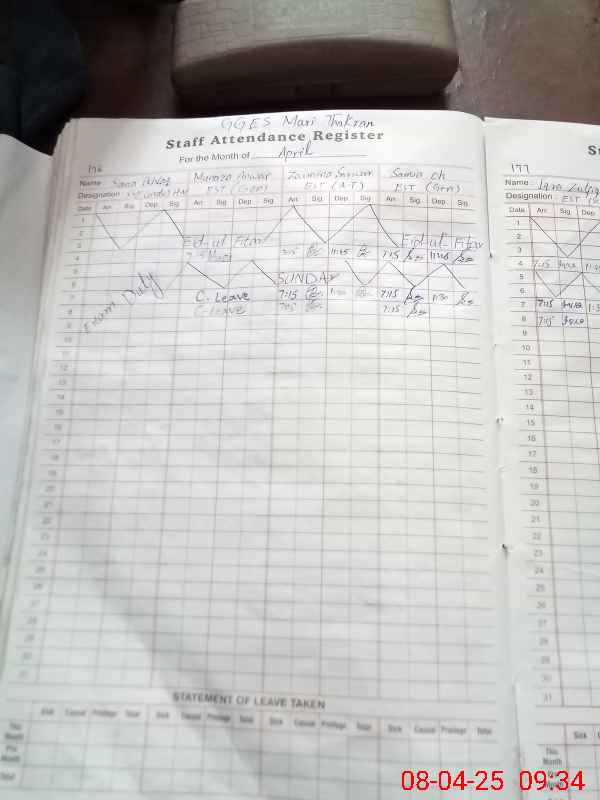 GGES Mari Thakran
Staff Attendance Register
For the Month of April
176
Name : Sana Munaza Anwar Zaunaira Sarwar Samia ch
Designation : EST (Gen) EST (A.T) EST (Gen)
Date Arr. Sig. Dep. Sig. Arr. Sig. Dep. Sig. Arr. Sig. Dep. Sig. Arr. Sig. Dep. Sig.
1
2
3 Eid-ul-Fitar Eid-ul-Fitar
4 7:15 11:45 7:15 11:45
5
6 SUNDAY
Exam Duty
7 C-Leave 7:15 11:30 7:15 11:30
8 C-Leave 7:15
9
10
11
12
13
14
15
16
17
18
19
20
21
22
23
24
25
26
27
28
29
30
31
STATEMENT OF LEAVE TAKEN
Sick Casual Privilege Total Sick Casual Privilege Total Sick Casual Privilege Total Sick Casual Privilege Total
This Month
Pre. Month
Total
177
Name : Iqra
Designation : EST
Date Arr. Sig. Dep.
1
2
3
4 7:15 11:45
5
6
7 7:15 11:30
8 7:15
9
10
11
12
13
14
15
16
17
18
19
20
21
22
23
24
25
26
27
28
29
30
31
Sick
This Month
Month
Total
08-04-25 09:34